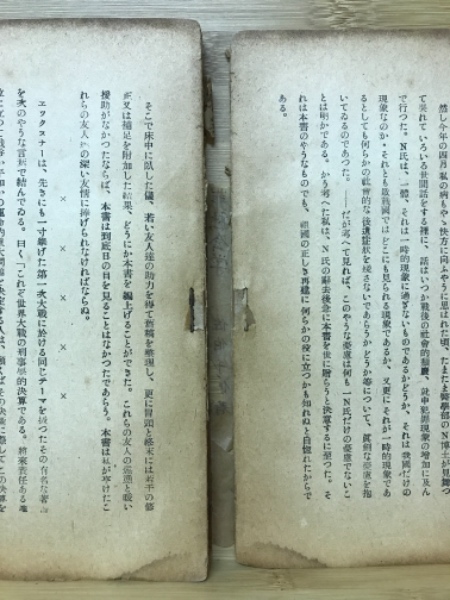 然し今年の四月私の病もやゝ快方に向ふやうに思はれた頃、たまたま醫學部のN博士が見舞つ
て呉れていろいろ世間話をする裡に、話はいつか戰後の社會的頽廢、就中犯罪現象の増加に及ん
で行つた。N氏は、一體、それは一時的現象に過ぎないものであるかどうか、それは我國だけの
現象なのか、それとも敗戰國ではどこにも見られる現象であるか、又更にそれが一時的現象であ
るとしても何らかの社會的な後遺症狀を殘さないであらうかどうか等について、眞劍な憂慮を抱
いてゐるのであつた。――だが考へて見れば、このやうな憂慮は何も一N氏だけの憂慮でないこ
とは明かである。かう考へた私は、N氏の辭去後急に本書を世に贈らうと決意するに至つた。そ
れは本書のやうなものでも、祖國の正しき再建に何らかの役に立つかも知れぬと自惚れたからで
ある。
そこで床中に臥した儘、若い友人達の助力を得て舊稿を整理し、更に冒頭と終末には若干の修
正又は補足を附加した結果、どうにか本書を纒上げることができた。これらの友人の
援助がなかつたならば、本書は到底日の目を見ることはなかつたであらう。本書は私が寧けたこ
れらの友人達の深い友情に捧げられなければならぬ。
× × × ×
エクスナーは、先きにも一寸擧げた第一次大戰に於ける同じテーマを扱つたその有名な著
を次のやうな言葉で結んでゐる。曰く「これぞ世界大戰の刑事學的決算である。將來責任ある